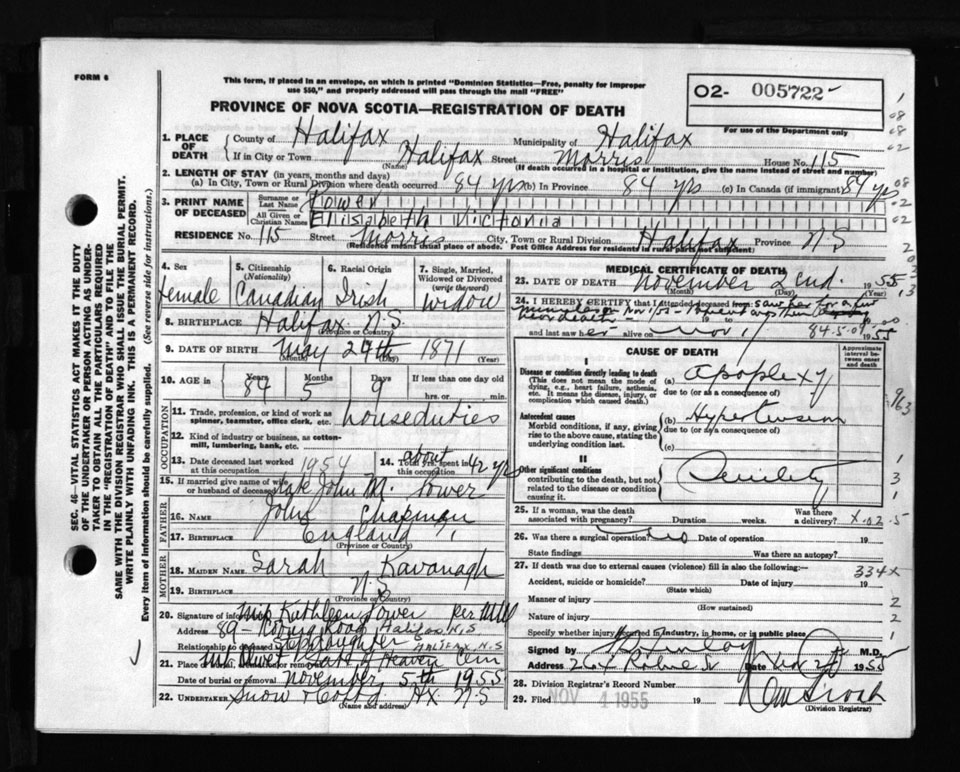 FORM 6
This form, if placed in an envelope, on which is printed "Dominion Statistics—Free, penalty for improper
use $50," and properly addressed will pass through the mail "FREE"
PROVINCE OF NOVA SCOTIA—REGISTRATION OF DEATH
02- 005722
For use of the Department only
SEC. 46—VITAL STATISTICS ACT MAKES IT THE DUTY
OF THE UNDERTAKER OR PERSON ACTING AS UNDER-
TAKER TO OBTAIN ALL THE PARTICULARS REQUIRED
IN THE "REGISTRATION OF DEATH" AND TO FILE THE
SAME WITH THE DIVISION REGISTRAR WHO SHALL ISSUE THE BURIAL PERMIT.
WRITE PLAINLY WITH UNFADING INK. THIS IS A PERMANENT RECORD.
Every item of Information should be carefully supplied. (See reverse side for instructions.)
1. PLACE OF DEATH County of Halifax Municipality of Halifax
If in City or Town Halifax Street Morris House No. 115
(Name) (If death occurred in a hospital or institution, give the name instead of street and number)
2. LENGTH OF STAY (in years, months and days)
(a) In City, Town or Rural Division where death occurred 84 yrs (b) In Province 84 yrs (c) In Canada (if immigrant) 84 yrs
3. PRINT NAME OF DECEASED Surname or Last Name Power
All Given or Christian Names Elisabeth Victoria
RESIDENCE No. 115 Street Morris City, Town or Rural Division Halifax Province N S
(Residence means usual place of abode. Post Office Address for residents in rural parts not sufficient)
4. Sex female
5. Citizenship (Nationality) Canadian
6. Racial Origin Irish
7. Single, Married, Widowed or Divorced (write the word) widow
8. BIRTHPLACE Halifax N.S.
(Province or Country)
9. DATE OF BIRTH May 24th 1871
(Month) (Day) (Year)
10. AGE in Years 84 Months 5 Days 9 If less than one day old
hrs. or min.
OCCUPATION
11. Trade, profession, or kind of work as spinner, teamster, office clerk, etc. houseduties
12. Kind of industry or business, as cotton-mill, lumbering, bank, etc.
13. Date deceased last worked at this occupation 1954
14. Total yrs. spent in this occupation about 42 yrs
15. If married give name of wife or husband of deceased late John M. Power
FATHER
16. NAME John Chapman
17. BIRTHPLACE England
(Province or Country)
MOTHER
18. MAIDEN NAME Sarah Kavanagh
19. BIRTHPLACE N.S
(Province or Country)
20. Signature of informant Kathleen Power per
Address 89 Road Halifax N.S
Relationship to deceased Stepdaughter HALIFAX N.S
21. Place of burial, cremation or removal Mt Olivet Gate of Heaven Cem
Date of burial or removal November 5th 1955
22. UNDERTAKER Snow & Co Ltd Hx N-S
(Name and address)
MEDICAL CERTIFICATE OF DEATH
23. DATE OF DEATH November 2nd 1955
(Month) (Day) (Year)
24. I HEREBY CERTIFY that I attended deceased from saw her for a few
minutes on Nov 1/55
and last saw her alive on Nov 1 1955
84.5.09
CAUSE OF DEATH
Approximate interval between onset and death
I
Disease or condition directly leading to death (a) apoplexy
(This does not mean the mode of dying, e.g., heart failure, asthenia, etc. It means the disease, injury, or complication which caused death.) due to (or as a consequence of)
Antecedent causes (b) Hypertension
Morbid conditions, if any, giving rise to the above cause, stating the underlying condition last. due to (or as a consequence of)
(c)
II
Other significant conditions contributing to the death, but not related to the disease or condition causing it. Senility
25. If a woman, was the death associated with pregnancy? Duration weeks. Was there a delivery?
26. Was there a surgical operation? No Date of operation 19
State findings Was there an autopsy?
27. If death was due to external causes (violence) fill in also the following:—
334x
Accident, suicide or homicide? Date of injury 19
(State which)
Manner of injury
(How sustained)
Nature of injury
Specify whether injury occurred in industry, in home, or in public place
Signed by M.D.
Address Robie St Date Nov 1955
28. Division Registrar's Record Number
29. Filed NOV 4 1955 19
(Division Registrar)